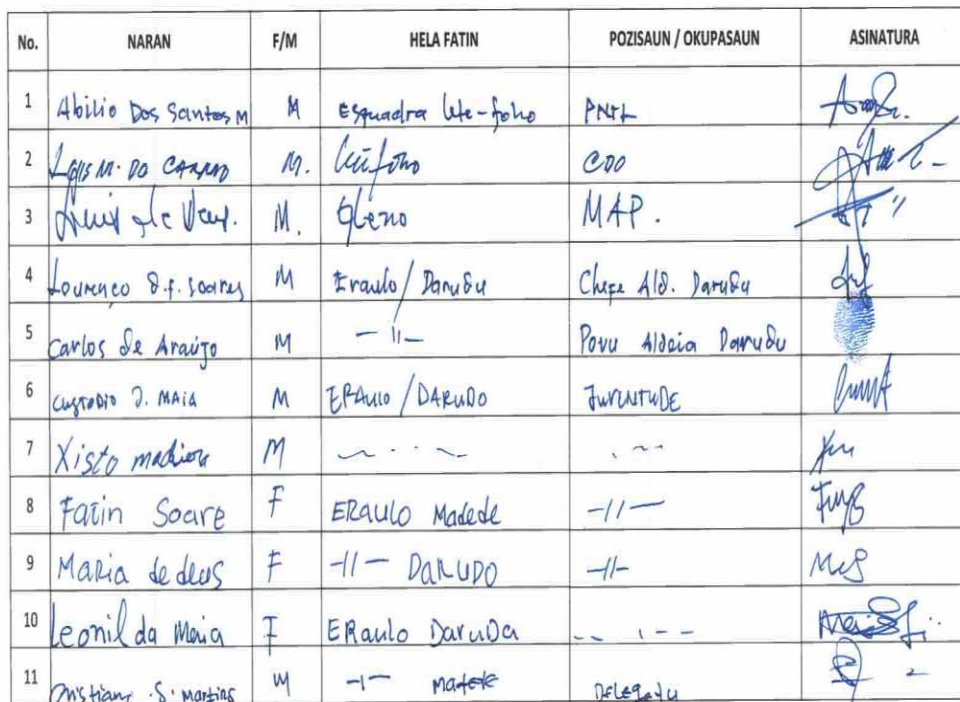 No. NARAN F/M HELA FATIN POZISAUN / OKUPASAUN ASINATURA
1 Abilio Dos Santos M M Esquadra PNTL
2 M. DO CARMO M. COO
3 M. Gleno MAP.
4 Lourenço d.f. Soares M Eraulo / Darudu Chefe Ald. Darudu
5 Carlos de Araújo M -11- Povu Aldeia Darudu
6 Custodio J. MAIA M ERAulo / DARUDO JUVENTUDE
7 Xisto M
8 Fatin Soare F ERAULO Madede -11-
9 Maria de deus F -11- DARUDO -11-
10 Leonil da Maia F ERaulo Daruda
11 S. Martins M DELEGADU